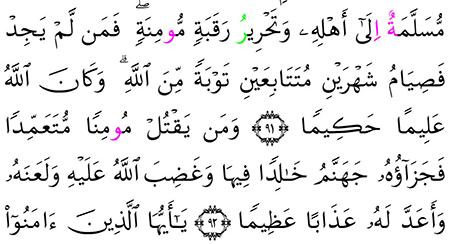 مُّسَلَّمَةٌ اِلَىٰٓ أَهْلِهِۦ وَتَحْرِيرُ رَقَبَةٍ مُّومِنَةٍۖ فَمَن لَّمْ يَجِدْ
فَصِيَامُ شَهْرَيْنِ مُتَتَابِعَيْنِ تَوْبَةً مِّنَ اَللَّهِۗ وَكَانَ اَللَّهُ
عَلِيمًا حَكِيمًا ۝٩١ وَمَن يَقْتُلْ مُومِنًا مُّتَعَمِّدًا
فَجَزَآؤُهُۥ جَهَنَّمُ خَٰلِدًا فِيهَا وَغَضِبَ اَللَّهُ عَلَيْهِ وَلَعَنَهُۥ
وَأَعَدَّ لَهُۥ عَذَابًا عَظِيمًا ۝٩٢ يَٰٓأَيُّهَا اَلَّذِينَ ءَامَنُوٓاْ